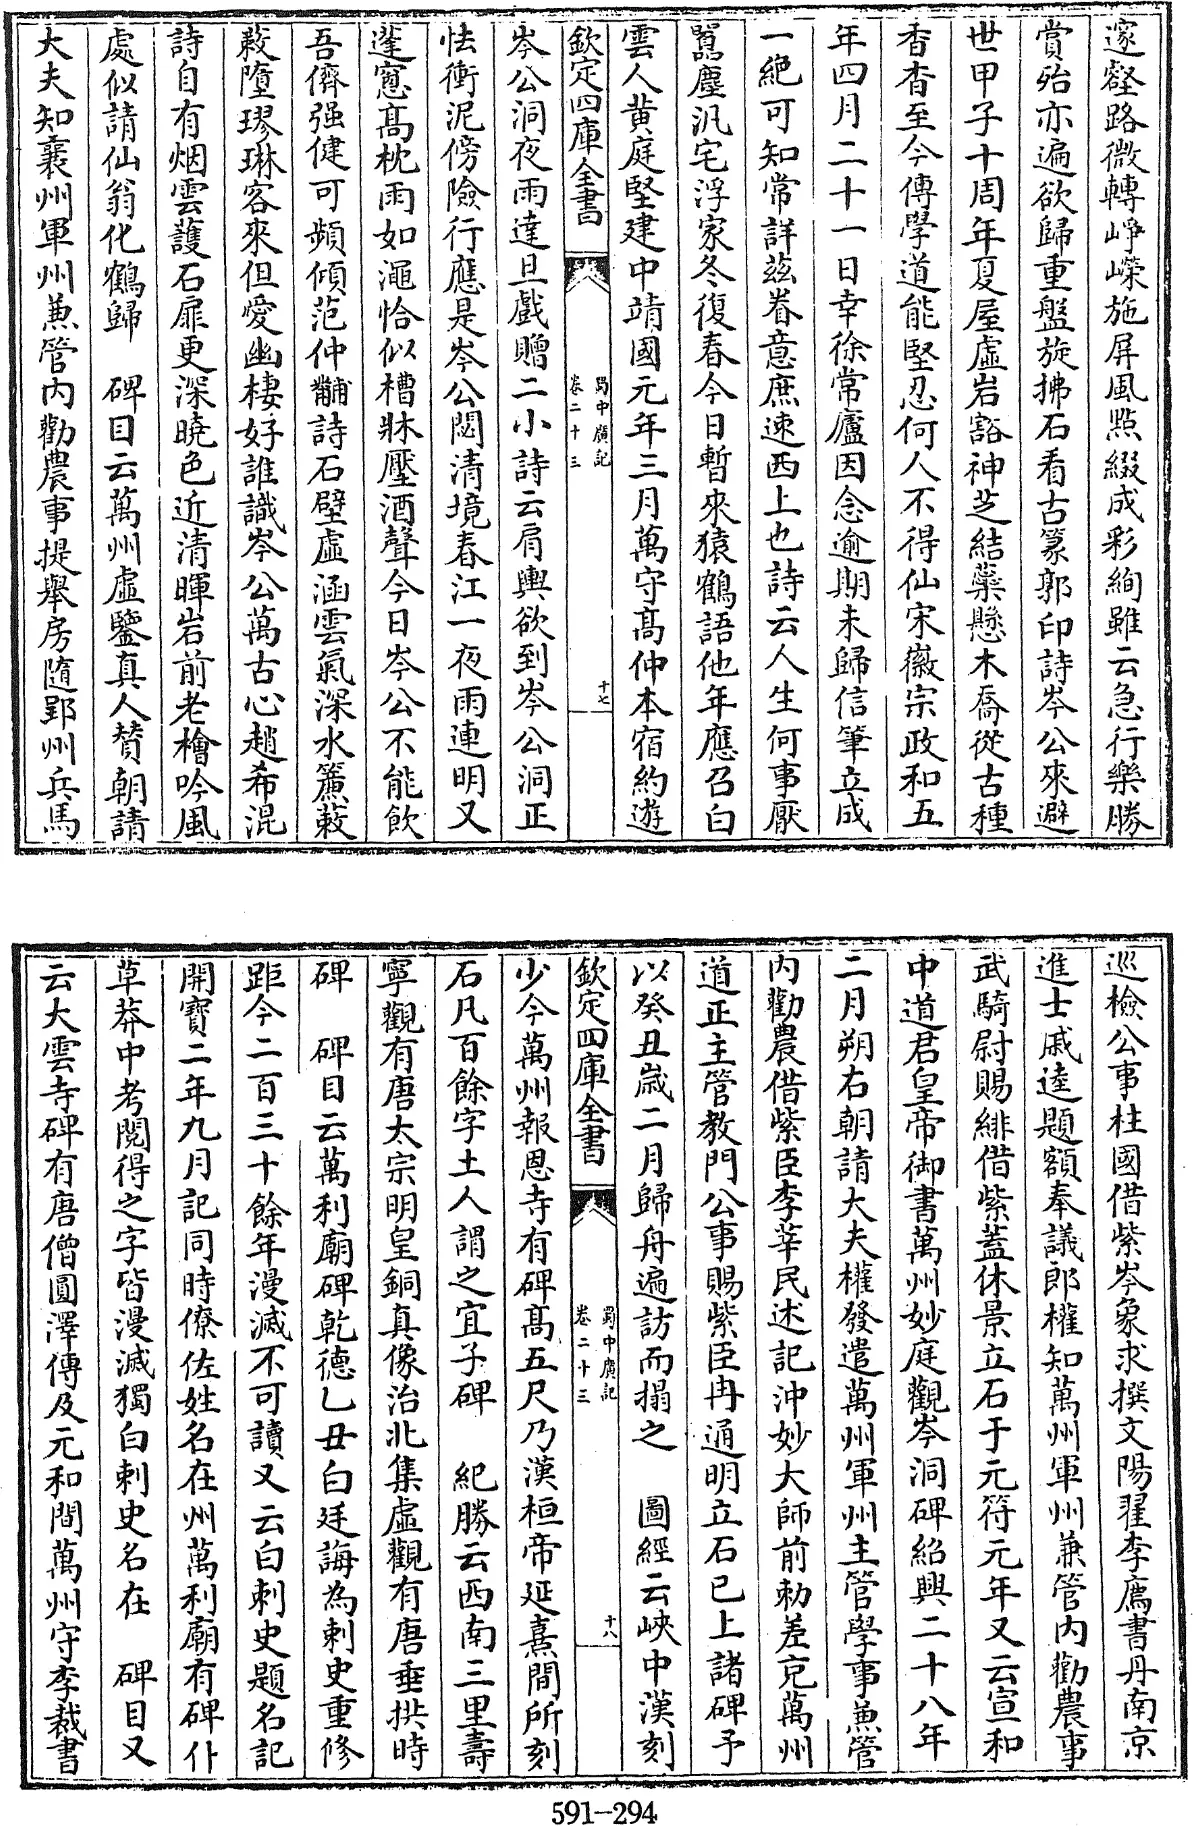 邃壑路微轉崢嶸施屏風㸃綴成彩絢雖云急行樂勝
賞殆亦遍欲歸重盤旋拂石看古篆郭印詩岑公來避
世甲子十周年夏屋虛岩豁神芝結藥懸木喬從古種
香杳至今傳學道能堅忍何人不得仙宋徽宗政和五
年四月二十一日幸徐常廬因念逾期未歸信筆立成
一絶可知常詳茲眷意庶速西上也詩云人生何事厭
囂塵汎宅浮家冬復春今日暫來猿鶴語他年應召白
雲人黄庭堅建中靖國元年三月萬守髙仲本宿約遊
欽定四庫全書
蜀中廣記
卷二十三
十七
岑公洞夜雨達旦戲贈二小詩云肩輿欲到岑公洞正
怯衝泥傍險行應是岑公閟清境春江一夜雨連明又
蓬窓髙枕雨如澠恰似槽牀壓酒聲今日岑公不能飲
吾儕强健可頻傾范仲黼詩石壁虛涵雲氣深水簾蔌
蔌墮璆琳客來但愛幽棲好誰識岑公萬古心趙希混
詩自有烟雲護石扉更深曉色近清暉岩前老檜吟風
處似請仙翁化鶴歸　碑目云萬州虛鑒真人贊朝請
大夫知襄州軍州兼管内勸農事提舉房隨郢州兵馬
巡檢公事柱國借紫岑象求撰文陽翟李廌書丹南京
進士戚逵題額奉議郎權知萬州軍州兼管内勸農事
武騎尉賜緋借紫蓋休景立石于元符元年又云宣和
中道君皇帝御書萬州妙庭觀岑洞碑紹興二十八年
二月朔右朝請大夫權發遣萬州軍州主管學事兼管
内勸農借紫臣李莘民述記沖妙大師前勑差充萬州
道正主管教門公事賜紫臣冉通明立石已上諸碑予
以癸丑歲二月歸舟遍訪而搨之　圖經云峽中漢刻
欽定四庫全書
蜀中廣記
卷二十三
十八
少今萬州報恩寺有碑髙五尺乃漢桓帝延熹間所刻
石凡百餘字土人謂之宜子碑　紀勝云西南三里壽
寧觀有唐太宗明皇銅真像治北集虛觀有唐垂拱時
碑　碑目云萬利廟碑乾德乙丑白廷誨為刺史重修
距今二百三十餘年漫滅不可讀又云白刺史題名記
開寶二年九月記同時僚佐姓名在州萬利廟有碑仆
草莽中考閱得之字皆漫滅獨白刺史名在　碑目又
云大雲寺碑有唐僧圓澤傳及元和間萬州守李裁書
591-294